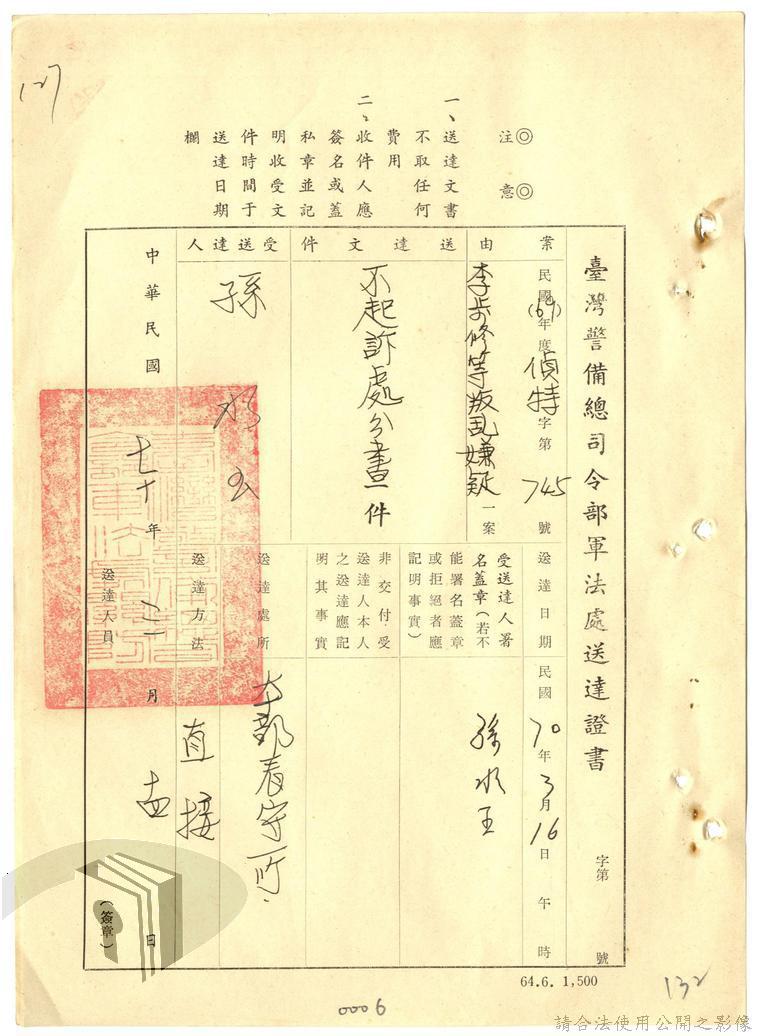 127
◎注意◎
一、送達文書
不取任何
費用
二、收件人應
簽名或蓋
私章並記
明收受文
件時間于
送達日期
欄
臺灣警備總司令部軍法處送達證書 字第 號
案由
民國(69)年度偵特字第745號
李步修等叛乱嫌疑一案
送達文件
不起訴處分書一件
受送達人
孫水玉
送達日期
民國70年3月16日午時
受送達人署
名蓋章(若不
能署名蓋章
或拒絕者應
記明事實)
孫水玉
非交付受
送達人本人
之送達應記
明其事實
送達處所
本部看守所.
送達方法
直接
中華民國七十年三月 日
送達人員
(簽章)
64.6. 1,500
0006
132
請合法使用公開之影像